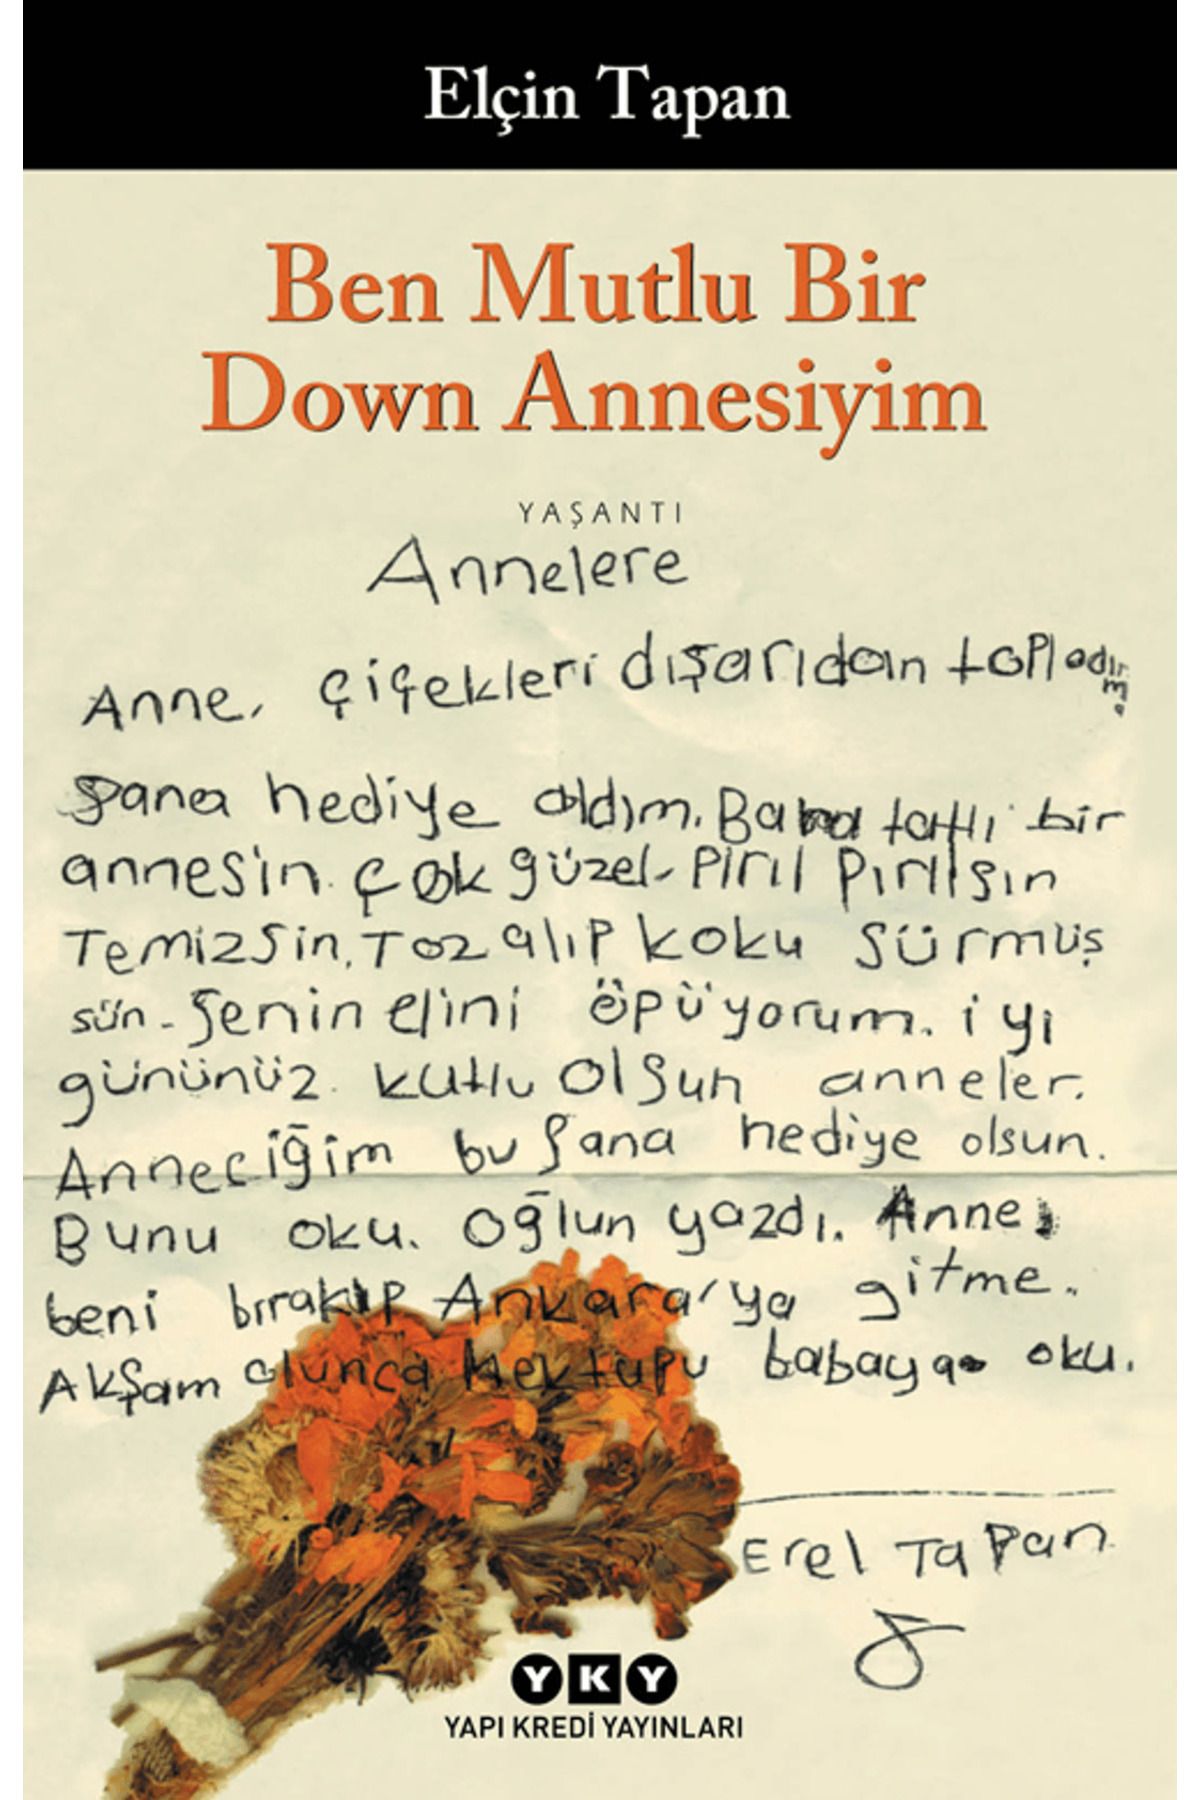 Elçin Tapan
Ben Mutlu Bir
Down Annesiyim
YAŞANTI
Annelere
Anne, çiçekleri dışarıdan topladım.
Şana hediye aldım. Bana tatlı bir
annesin. Çok güzel. Pırıl pırılsın
Temizsin. Toz alıp koku sürmüş
sün. Şenin elini öpüyorum. iyi
gününüz kutlu olsun anneler.
Anneciğim bu Şana hediye olsun.
Bunu oku. Oğlun yazdı. Anne,
beni bırakıp Ankara'ya gitme.
Akşam olunca mektupu babaya oku.
Erel Tapan
YKY
YAPI KREDİ YAYINLARI